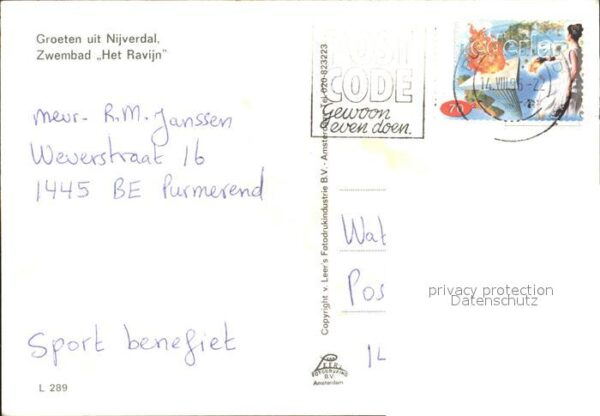 Groeten uit Nijverdal,
Zwembad „Het Ravijn"
meur- R.M. Janssen
Weverstraat 16
1445 BE Purmerend
Sport benefiet
L 289
POST
CODE
Gewoon
even doen.
Nederland
70
14.VIII.96-2
Copyright v. Leer's Fotodrukindustrie B.V. - Amsterdam Tel. 020-823223
Wat
Pos
LEER'S
FOTODRUKIND.
B.V.
Amsterdam
privacy protection
Datenschutz